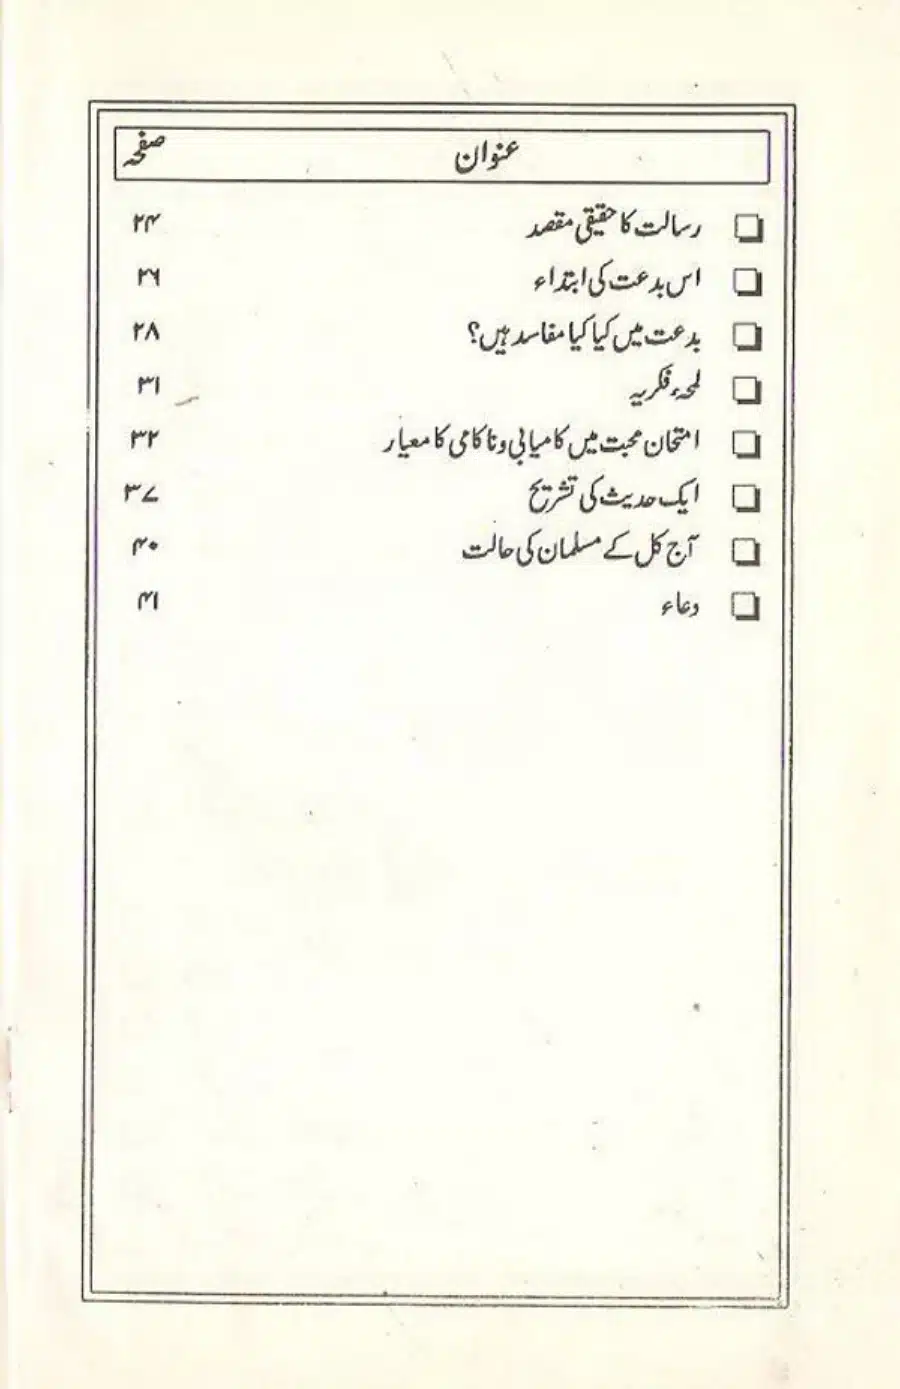 عنوان صفحہ
❏ رسالت کا حقیقی مقصد ۲۴
❏ اس بدعت کی ابتداء ۲۶
❏ بدعت میں کیا کیا مفاسد ہیں؟ ۲۸
❏ لمحہء فکریہ ۳۱
❏ امتحان محبت میں کامیابی و ناکامی کا معیار ۳۲
❏ ایک حدیث کی تشریح ۳۷
❏ آج کل کے مسلمان کی حالت ۴۰
❏ دعاء ۴۱